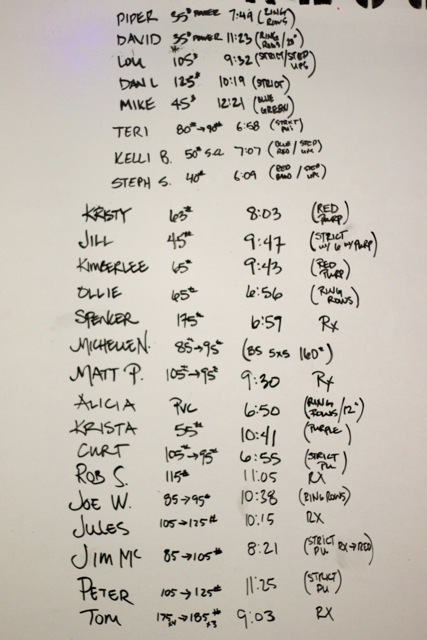 PIPER 35# POWER 7:49 (RING ROWS)
DAVID 35# POWER 11:23 (RING ROWS/20")
LOU 105# 9:32 (STRICT/STEP UPS)
DAN L 125# 10:19 (STRICT)
MIKE 45# 12:21 (BLUE GREEN)
TERI 80#→90# 6:58 (STRICT PU)
KELLI B. 50# 7:07 (BLUE/RED/STEP UPS)
STEPH S. 40# 6:09 (RED BAND/STEP UPS)
KRISTY 63# 8:03 (RED PURP)
JILL 45# 9:47 (STRICT W/ 6 W/PURP)
KIMBERLEE 65# 9:43 (RED PURP)
OLLIE 65# 6:56 (RING ROWS)
SPENCER 175# 6:59 RX
MICHELLE N. 85#→95# (BS 5x5 160#)
MATT P. 105#→95# 9:30 RX
ALICIA PVC 6:50 (RING ROWS/12")
KRISTA 55# 10:41 (PURPLE)
CURT 105#→95# 6:55 (STRICT PU)
ROB S. 115# 11:05 RX
JOE W. 85→95# 10:38 (RING ROWS)
JULES 105→125# 10:15 RX
JIM MC 85→105# 8:21 (STRICT PU RX→RED)
PETER 105→125# 11:25 (STRICT PU)
TOM 175→185# x3 9:03 RX